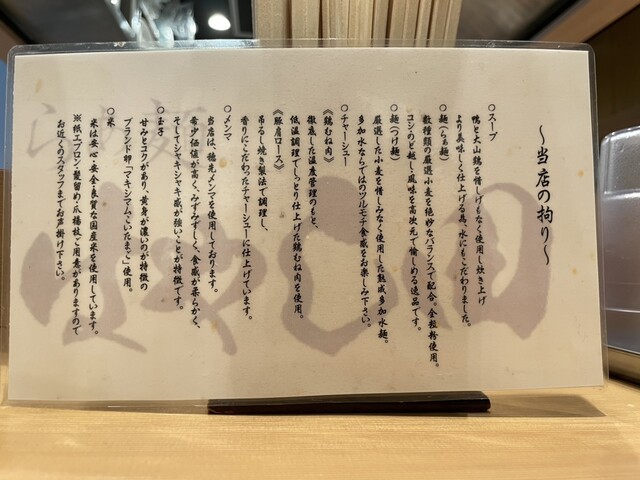 〜当店の拘り〜
○スープ
鴨と大山鶏を惜しげもなく使用し炊き上げ
より美味しく仕上げる為、水にもこだわりました。
○麺(らぁ麺)
数種類の厳選小麦を絶妙なバランスで配合。全粒粉使用。
コシのど越し・風味を高次元で愉しめる逸品です。
○麺(つけ麺)
厳選した小麦を惜しみなく使用した熟成多加水麺。
多加水ならではのツルモチ食感をお楽しみ下さい。
○チャーシュー
《鶏むね肉》
徹底した温度管理のもと、
低温調理でしっとり仕上げた鶏むね肉を使用。
《豚肩ロース》
吊るし焼き製法で調理し、
香りにこだわったチャーシューに仕上げています。
○メンマ
当店は、穂先メンマを使用しております。
希少価値が高く、みずみずしく、食感が柔らかく、
そしてシャキシャキ感が強いことが特徴です。
○玉子
甘みとコクがあり、黄身が濃いのが特徴の
ブランド卵「マキシマムこいたまご」使用。
○米
米は安心・安全・良質な国産米を使用しています。
※紙エプロン・髪留め・爪楊枝ご用意がありますので
お近くのスタッフまでお声掛け下さい。